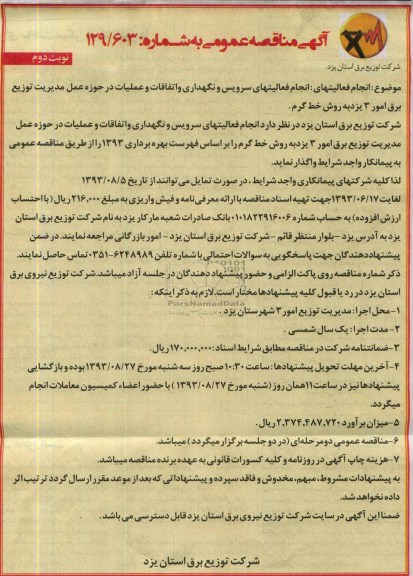 آگهی مناقصه عمومی به شماره: ۱۲۹/۶۰۳
شرکت توزیع برق استان یزد
نوبت دوم
موضوع: انجام فعالیتهای: انجام فعالیتهای سرویس و نگهداری و اتفاقات و عملیات در حوزه عمل مدیریت توزیع
برق امور ۳ یزد به روش خط گرم.
شرکت توزیع برق استان یزد در نظر دارد انجام فعالیتهای سرویس و نگهداری و اتفاقات و عملیات در حوزه عمل
مدیریت توزیع برق امور ۳ یزد به روش خط گرم را بر اساس فهرست بهره برداری ۱۳۹۳ را از طریق مناقصه عمومی
به پیمانکار واجد شرایط واگذار نماید.
لذا کلیه شرکتهای پیمانکاری واجد شرایط، در صورت تمایل می توانند از تاریخ ۱۳۹۳/۰۸/۵
لغایت ۱۳۹۳/۰۶/۱۷ جهت تهیه اسناد مناقصه با ارائه معرفی نامه و فیش واریزی به مبلغ ۲۱۶,۰۰۰ ریال (با احتساب
ارزش افزوده) به حساب شماره ۰۱۰۱۸۲۲۹۱۶۰۰۶ بانک صادرات شعبه مارکار یزد به نام شرکت توزیع برق استان
یزد به آدرس یزد - بلوار منتظر قائم - شرکت توزیع برق استان یزد - امور بازرگانی مراجعه نمایند. در ضمن
پیشنهاد دهندگان جهت پاسخگویی به سوالات احتمالی با شماره تلفن ۶۲۴۸۹۸۹-۰۳۵۱ تماس حاصل نمایند.
ذکر شماره مناقصه روی پاکت الزامی و حضور پیشنهاد دهندگان در جلسه آزاد میباشد. شرکت توزیع نیروی برق
استان یزد در رد یا قبول کلیه پیشنهادها مختار است. لازم به ذکر اینکه:
ParsNamadData
۱- محل اجرا: مدیریت توزیع امور ۳ شهرستان یزد.
۲- مدت اجرا: یک سال شمسی.
۳- ضمانتنامه شرکت در مناقصه مطابق شرایط اسناد: ۱۷۰,۰۰۰,۰۰۰ ریال.
۴- آخرین مهلت تحویل پیشنهادها: ساعت ۱۰:۳۰ صبح روز سه شنبه مورخ ۱۳۹۳/۰۸/۲۷ بوده و بازگشایی
پیشنهادها نیز در ساعت ۱۱ همان روز (شنبه مورخ ۱۳۹۳/۰۸/۲۷) با حضور اعضاء کمیسیون معاملات انجام
میگردد.
۵- میزان برآورد ۲,۳۷۴,۴۸۷,۷۲۰ ریال.
۶- مناقصه عمومی دو مرحله ای (در دو جلسه برگزار میگردد) میباشد.
۷- هزینه چاپ آگهی در روزنامه و کلیه کسورات قانونی به عهده برنده مناقصه میباشد.
به پیشنهادات مشروط، مبهم، مخدوش و فاقد سپرده و پیشنهاداتی که بعد از موعد مقرر ارسال گردد ترتیب اثر
داده نخواهد شد.
ضمنا این آگهی در سایت شرکت توزیع نیروی برق استان یزد قابل دسترسی می باشد.
شرکت توزیع برق استان یزد